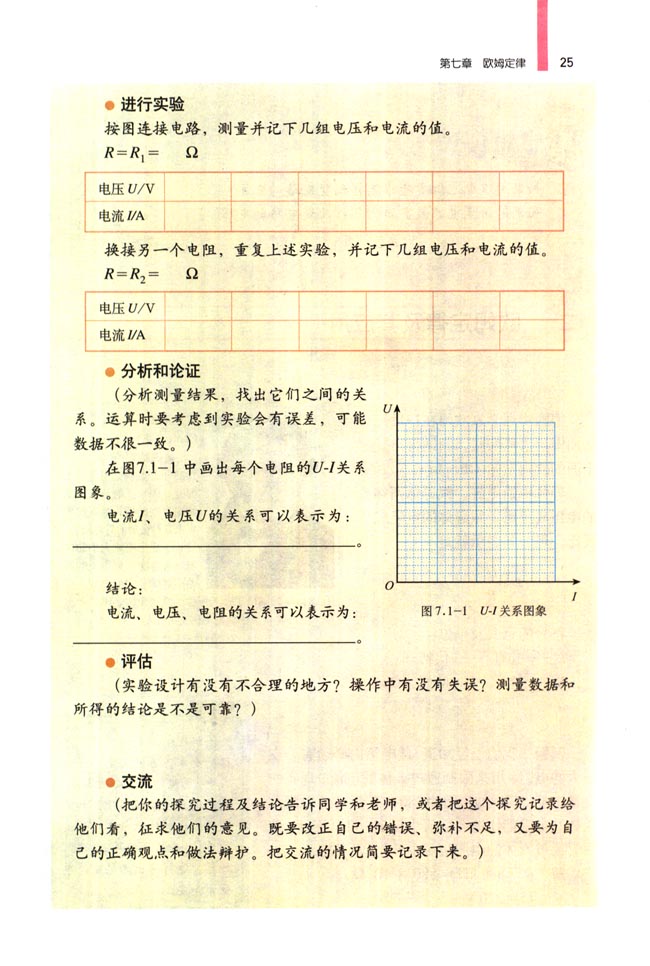 第七章 欧姆定律 25
● 进行实验
按图连接电路，测量并记下几组电压和电流的值。
R=R1= Ω
电压 U/V
电流 I/A
换接另一个电阻，重复上述实验，并记下几组电压和电流的值。
R=R2= Ω
电压 U/V
电流 I/A
● 分析和论证
（分析测量结果，找出它们之间的关
系。运算时要考虑到实验会有误差，可能
数据不很一致。）
在图7.1-1 中画出每个电阻的U-I关系
图象。
电流I、电压U的关系可以表示为：
。
结论：
电流、电压、电阻的关系可以表示为：
。
U
O
I
图7.1-1 U-I 关系图象
● 评估
（实验设计有没有不合理的地方？操作中有没有失误？测量数据和
所得的结论是不是可靠？）
● 交流
（把你的探究过程及结论告诉同学和老师，或者把这个探究记录给
他们看，征求他们的意见。既要改正自己的错误、弥补不足，又要为自
己的正确观点和做法辩护。把交流的情况简要记录下来。）